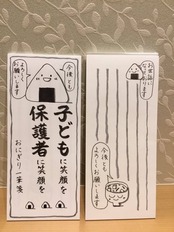 今後とも
よろしく
お願いします
子どもに笑顔を
保護者に笑顔を
おにぎり一筆箋
お世話に
なっております
今後とも
よろしく
お願いします